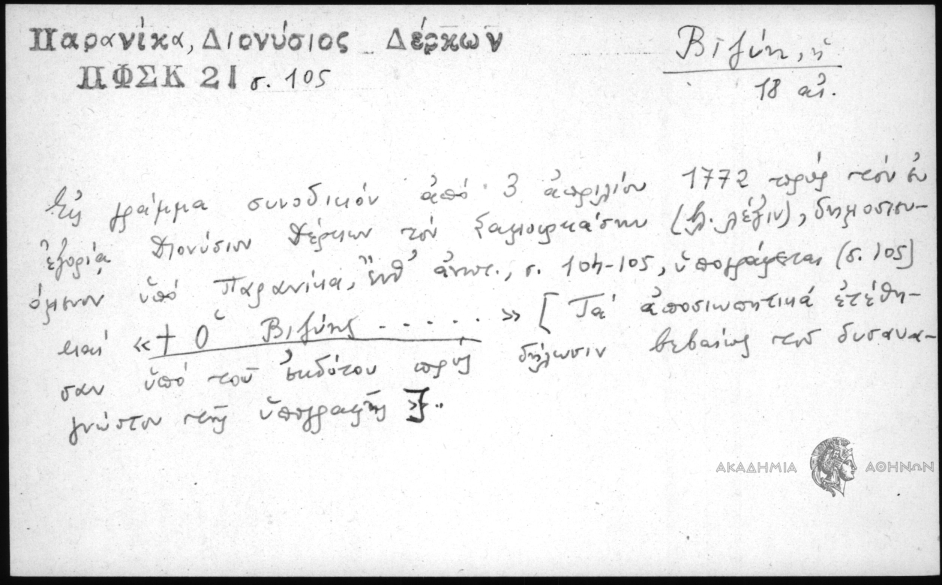 Παρανίκα, Διονύσιος Δέρκων
ΠΦΣΚ 21 σ. 105
Βιζύη, ἡ
18 αἰ.
Εἰς γράμμα συνοδικόν ἀπό 3 ἀπριλίου 1772 πρός τόν ἐν
ἐξορίᾳ Διονύσιον Δέρκων τόν (βλ. λέξιν), δημοσιευ-
όμενον ὑπό Παρανίκα, ἔνθ' ἀνωτ., σ. 104-105, ὑπογράφεται (σ. 105)
καί «† Ὁ Βιζύης . . . . . . » [Τά ἀποσιωπητικά ἐτέθη-
σαν ὑπό τοῦ ἐκδότου πρός δήλωσιν βεβαίως τοῦ δυσανα-
γνώστου τῆς ὑπογραφῆς].
ΑΚΑΔΗΜΙΑ ΑΘΗΝΩΝ